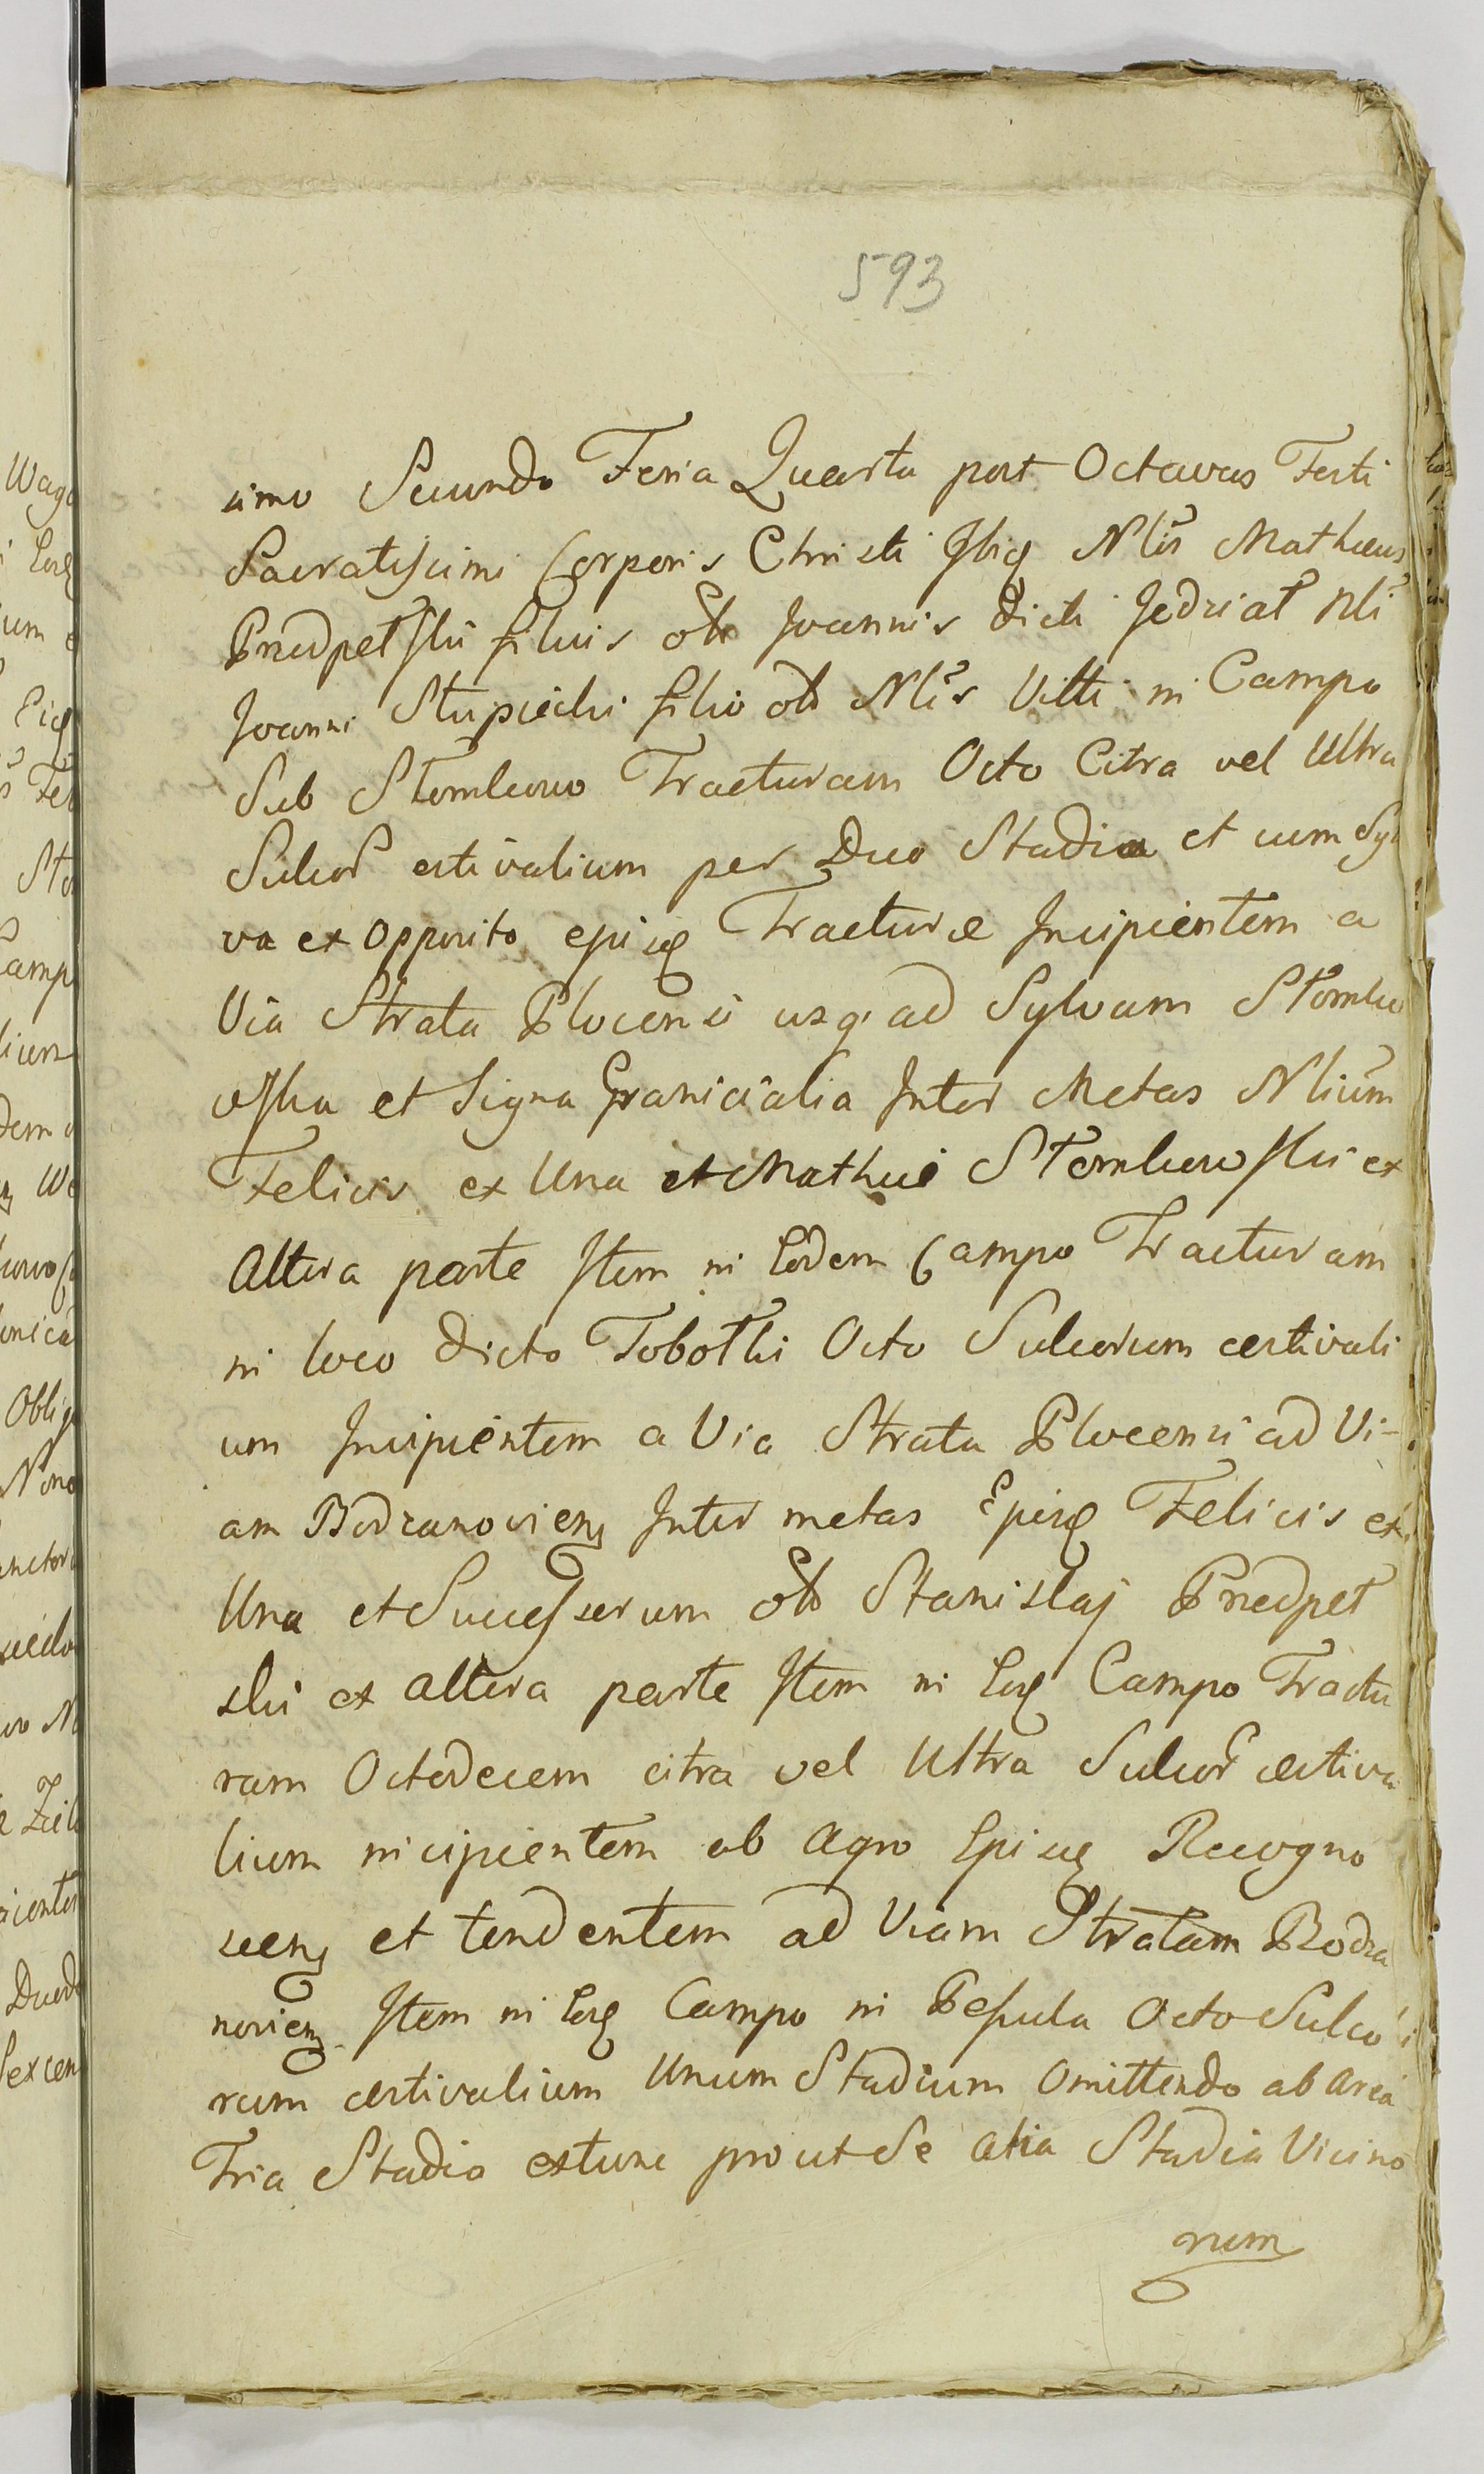 593
simo Secundo Feria Quarta post Octavas Festi
Sacratissimi Corporis Christi Ibiq Nlis Mathæus
Przedpełski filius olim Joannis dicti Jedrias Nli
Joanni Słupiecki filio olim Nlis Viti in Campo
Sub Słomkowo Tracturam Octo Citra vel Ultra
Sulcor estivalium per Duo Stadia et cum Syl
va ex Opposito ejusq Tracturæ Incipientem a
Via Strata Plocensi usq ad Sylvam Słomko
wska et Signa Granicialia Inter Metas Nlium
Felicis ex Una et Mathie Słomkowski ex
Altera parte Item in Eodem Campo Tracturam
in loco dicto Tobołki Octo Sulcorum æstivali
um Incipientem a Via Strata Plocensi ad Vi-
am Bodzanoviens Inter metas Ejusq Felicis ex
Una et Successorum olim Stanislaj Przedpeł
ski ex altera parte Item in Eoq Campo Tractu
ram Octodecem citra vel Ultra Sulcor æstiva
lium incipientem ab Agro Ejusq Recogno
scens et tendentem ad Viam Stratam Bodza
noviens Item in Eoq Campo in Pessula Octo Sulco
rum æstivalium Unum Stadium Omittendo ab Area
Tria Stadia extunc prout Se alia Stadia Vicino
rum